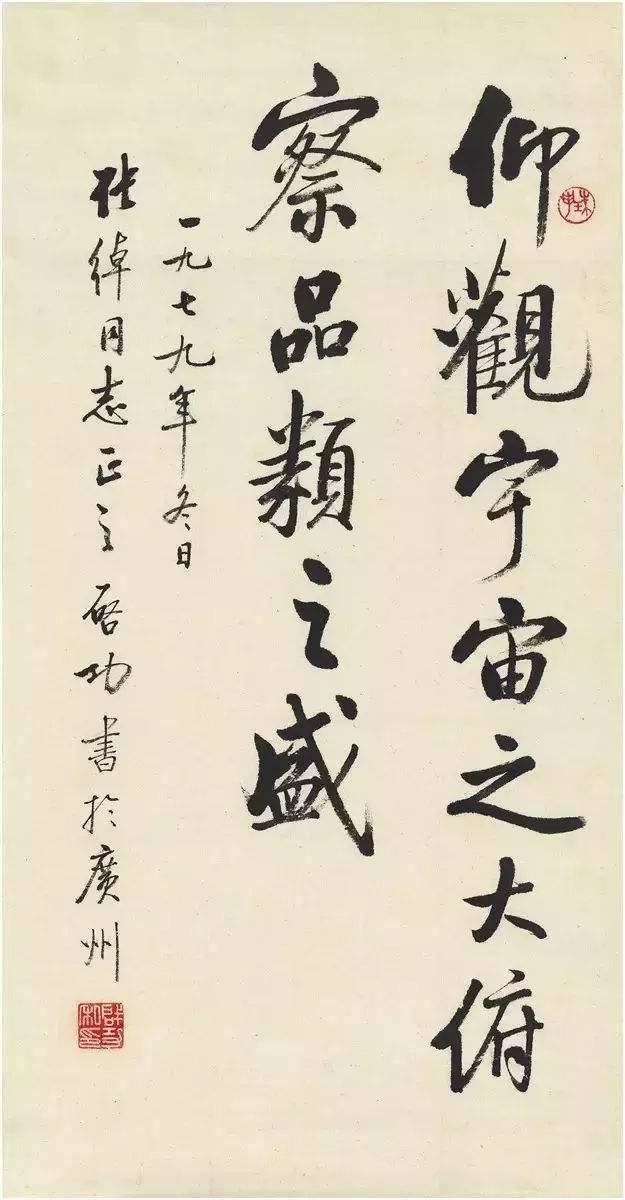 仰觀宇宙之大俯
察品類之盛
一九七九年冬日
綽同志正之啓功書於廣州